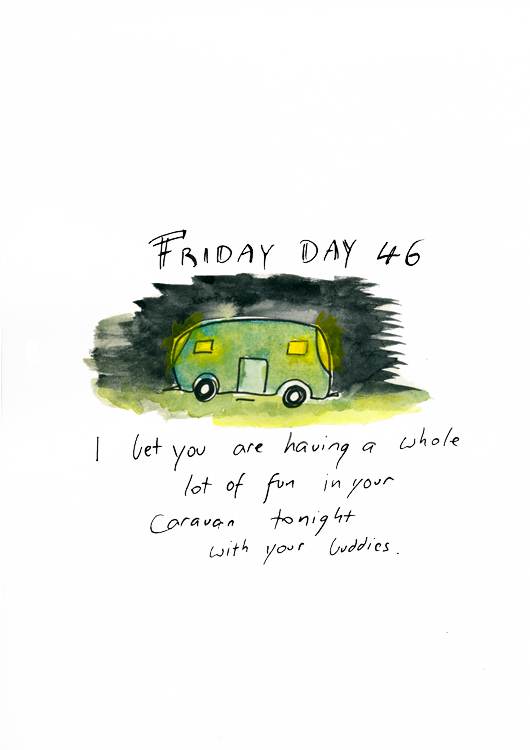 FRIDAY DAY 46
I bet you are having a whole
lot of fun in your
caravan tonight
with your buddies.